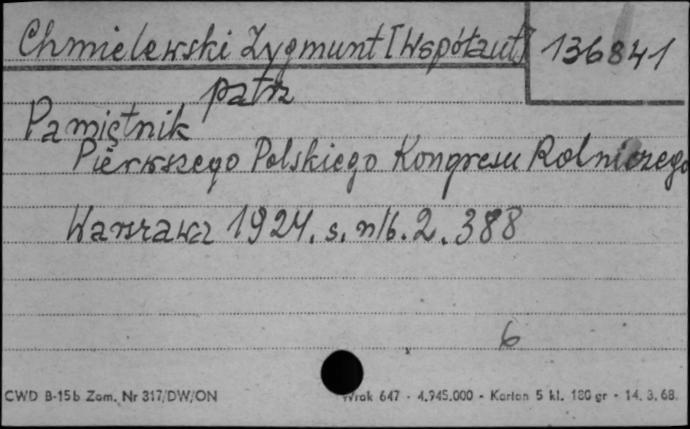 Chmielewski Zygmunt [Współaut] 136841
patrz
Pamiętnik
Pierwszego Polskiego Kongresu Rolniczego
Warszawa 1924. s. nlb. 2. 388
6
CWD B-15b Zam. Nr 317/DW/ON Wrak 647 - 4.945.000 - Karton 5 kl. 180 gr - 14. 3. 68.